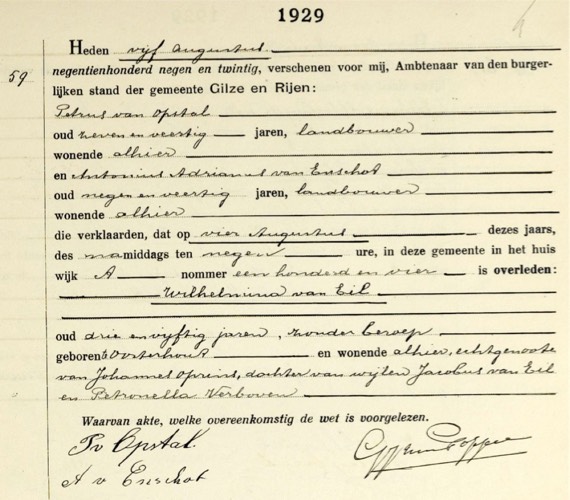 1929
Heden vijf Augustus
59
negentienhonderd negen en twintig, verschenen voor mij, Ambtenaar van den burger-
lijken stand der gemeente Gilze en Rijen:
Petrus van Opstal
oud zeven en veertig jaren, landbouwer
wonende alhier
en Antonius Adrianus van Enschot
oud negen en veertig jaren, landbouwer
wonende alhier
die verklaarden, dat op vier Augustus dezes jaars,
des namiddags ten negen ure, in deze gemeente in het huis
wijk A nommer een honderd en vier is overleden:
Wilhelmina van Eil
oud drie en vijftig jaren, zonder beroep
geboren te Oosterhout en wonende alhier, echtgenoote
van Johannes Oprins, dochter van wijlen Jacobus van Eil
en Petronella Verboven
Waarvan akte, welke overeenkomstig de wet is voorgelezen.
P v Opstal.
A v Enschot